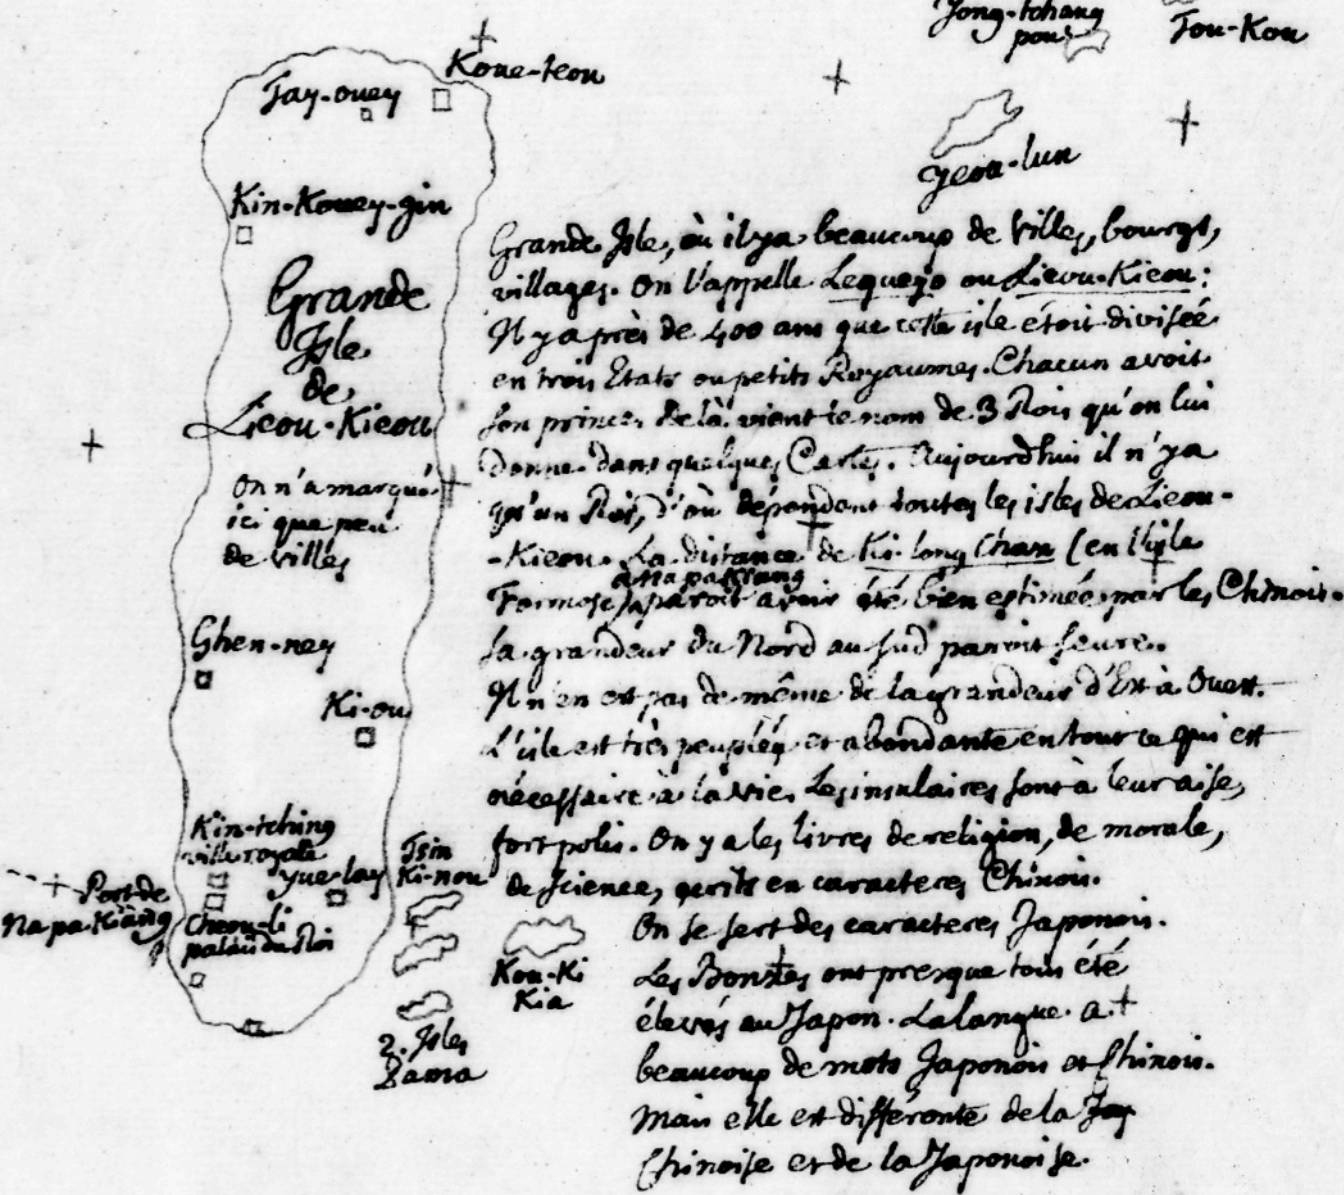 Jong-tchang
pou
Tou-Kou
Koue-teou
Tay-ouey
Yeou-lun
Kin-Kouey-gin
Grande
Isle
de
Lieou-Kieou
on n'a marqué
ici que peu
de villes
Ghen-ney
Ki-ou
Kin-tching
ville royale
Yue-lay
Port de
Napa Kiang
Cheou-li
palais du Roi
Tsin
Ki-nou
Kou-Ki
Kia
2. Isles
Grande Isle, où il y a beaucoup de Villes, bourgs,
villages. On l'appelle Lequeyo ou Lieou-Kieou:
Il y a près de 400 ans que cette isle étoit divisée
en trois Etats ou petits Royaumes. Chacun avoit
son prince. De là vient le nom de 3 Rois qu'on lui
donne dans quelques Cartes. Aujourdhui il n'y a
qu'un Roi, d'où dépendent toutes les isles de Lieou-
-Kieou. La distance de Ki-long Chan (en l'isle
à Napa Kiang
Formose) paroit avoir été bien estimée par les Chinois.
La grandeur du Nord au sud paroit seure.
Il n'en est pas de même de la grandeur d'Est à Ouest.
L'isle est très peuplée et abondante en tout ce qui est
nécessaire à la vie. Les insulaires sont à leur aise,
fort polis. On y a les livres de religion, de morale,
de science, ecrits en caracteres Chinois.
On se sert des caracteres Japonois.
Les Bonzes ont presque tous été
élevés au Japon. La langue a
beaucoup de mots Japonois et Chinois.
Mais elle est différente de la
Chinoise et de la Japonoise.